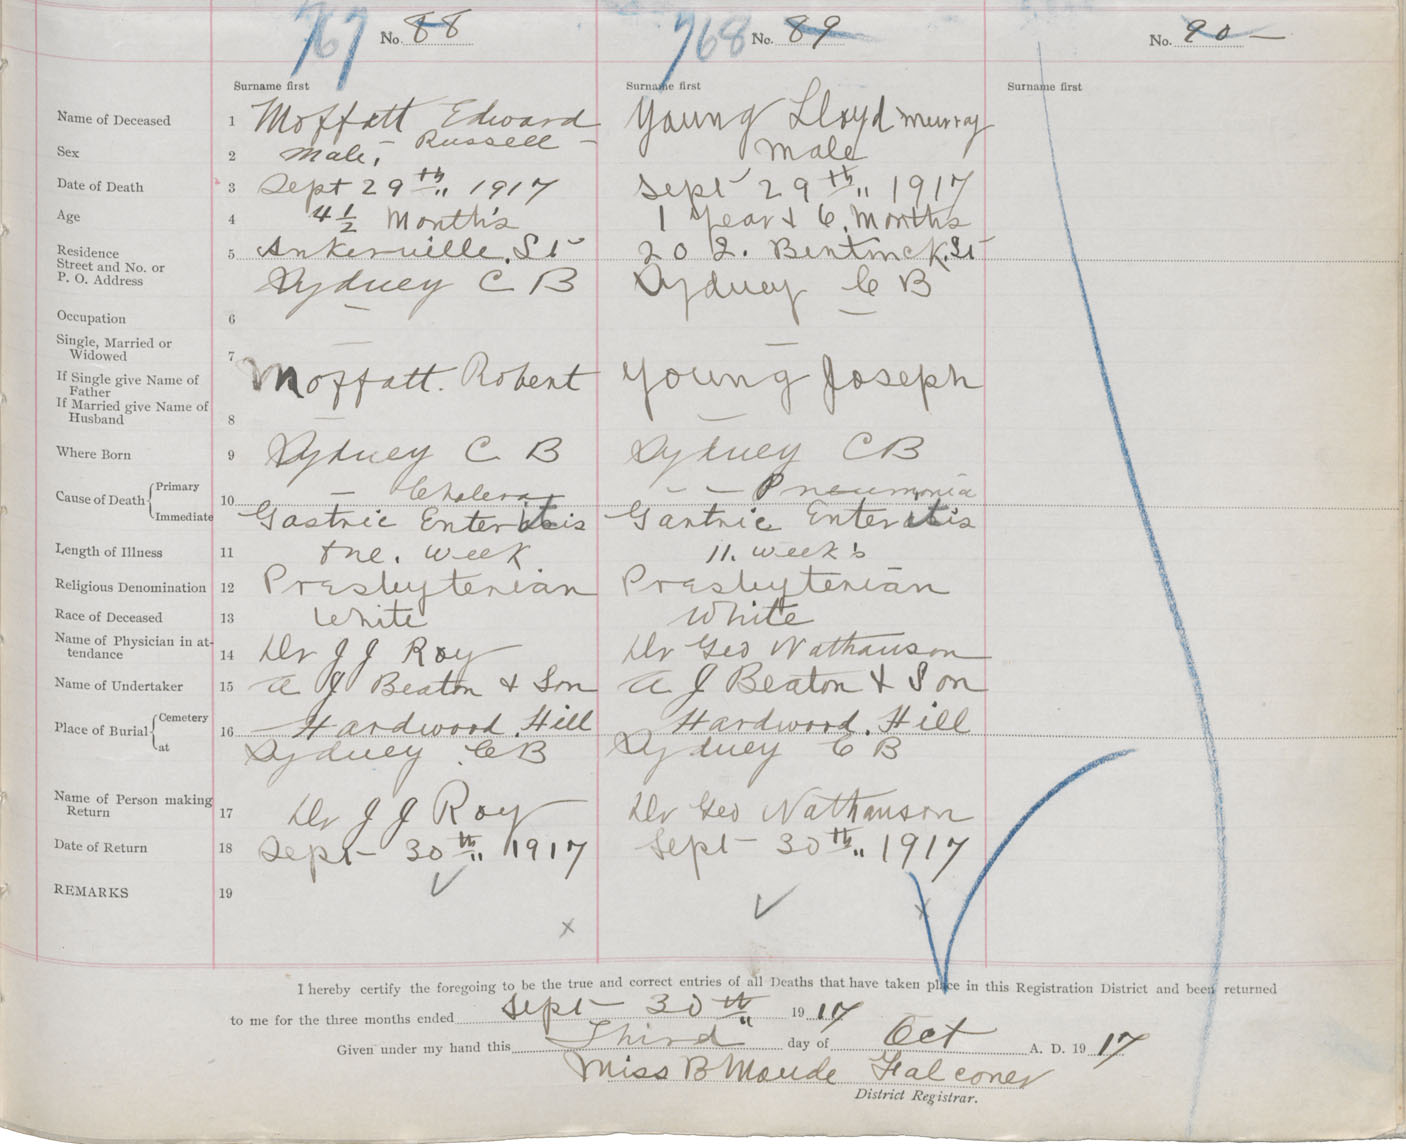 767 No. 88 768 No. 89 No. 90 —
Surname first Surname first Surname first
Name of Deceased 1 Moffatt Edward Young Lloyd Murray
Russell —
Sex 2 Male, Male
Date of Death 3 Sept 29th " 1917 Sept 29th " 1917
Age 4 4 1/2 Month's 1 Year & 6. Months
Residence 5 Ankerville. St 202. Bentinck. St
Street and No. or
P. O. Address Sydney C B Sydney C B
Occupation 6 — —
Single, Married or
Widowed 7 — —
If Single give Name of Moffatt. Robert Young Joseph
Father
If Married give Name of
Husband 8 — —
Where Born 9 Sydney C B Sydney C B
Cause of Death Primary 10 — Cholera — — Pneumonia
Immediate Gastric Enteritis Gastric Enteritis
Length of Illness 11 One. Week 11. Week's
Religious Denomination 12 Presbyterian Presbyterian
Race of Deceased 13 White White
Name of Physician in at-
tendance 14 Dr J J Roy Dr Geo Nathanson
Name of Undertaker 15 A J Beaton & Son A J Beaton & Son
Place of Burial Cemetery 16 Hardwood. Hill Hardwood. Hill
at Sydney C B Sydney C B
Name of Person making
Return 17 Dr J J Roy Dr Geo Nathanson
Date of Return 18 Sept — 30th " 1917 Sept — 30th " 1917
REMARKS 19
I hereby certify the foregoing to be the true and correct entries of all Deaths that have taken place in this Registration District and been returned
to me for the three months ended Sept — 30th " 1917
Given under my hand this Third day of Oct A. D. 1917
Miss B Maude Falconer
District Registrar.